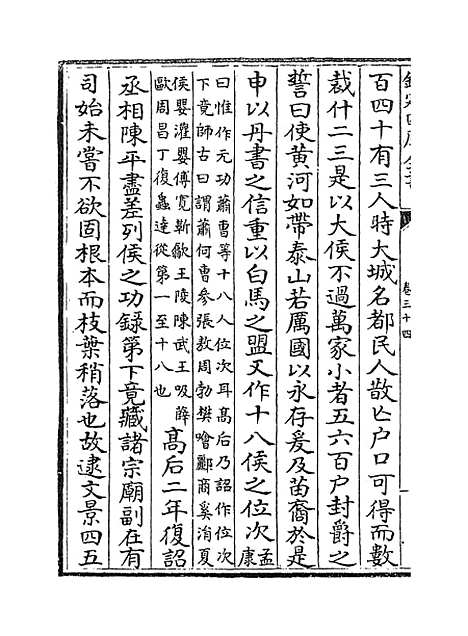 欽定四庫全書
卷三十四
百四十有三人時大城名都民人散亡户口可得而數
裁什二三是以大侯不過萬家小者五六百户封爵之
誓曰使黄河如帶泰山若厲國以永存爰及苗裔於是
申以丹書之信重以白馬之盟又作十八侯之位次孟康
曰惟作元功蕭曹等十八人位次耳髙后乃詔作位次
下竟師古曰謂蕭何曹參張敖周勃樊噲酈商奚涓夏
侯嬰灌嬰傅寛靳歙王陵陳武王吸薛
歐周昌丁復蟲達從第一至十八也
髙后二年復詔
丞相陳平盡差列侯之功録第下竟藏諸宗廟副在有
司始未嘗不欲固根本而枝葉稍落也故逮文景四五